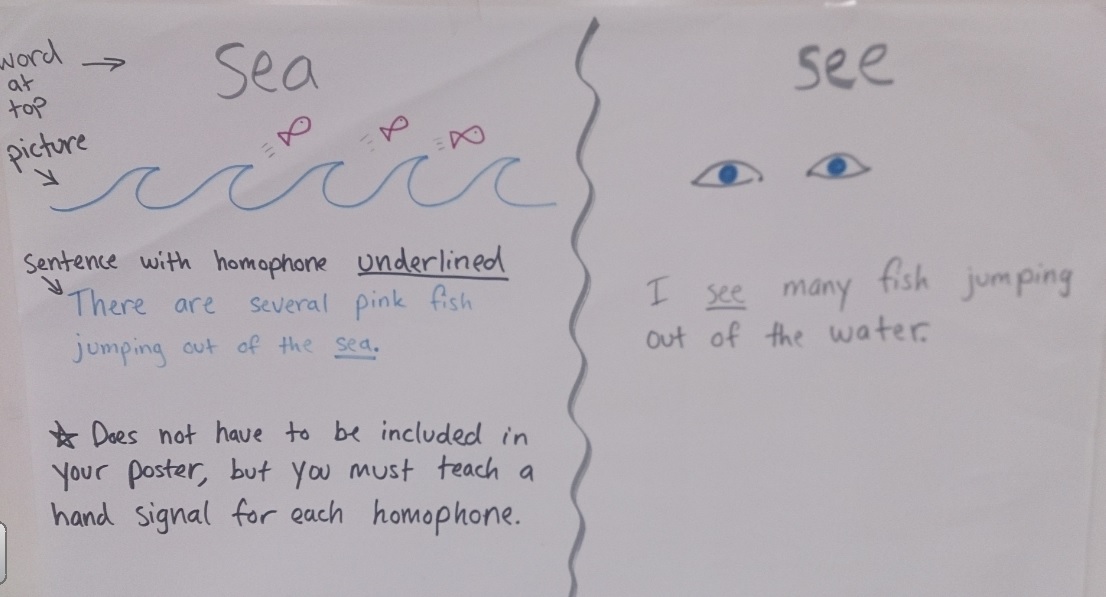 word →
at
top
Sea
picture
Sentence with homophone underlined
There are several pink fish
jumping out of the sea.
☆ Does not have to be included in
your poster, but you must teach a
hand signal for each homophone.
see
I see many fish jumping
out of the water.